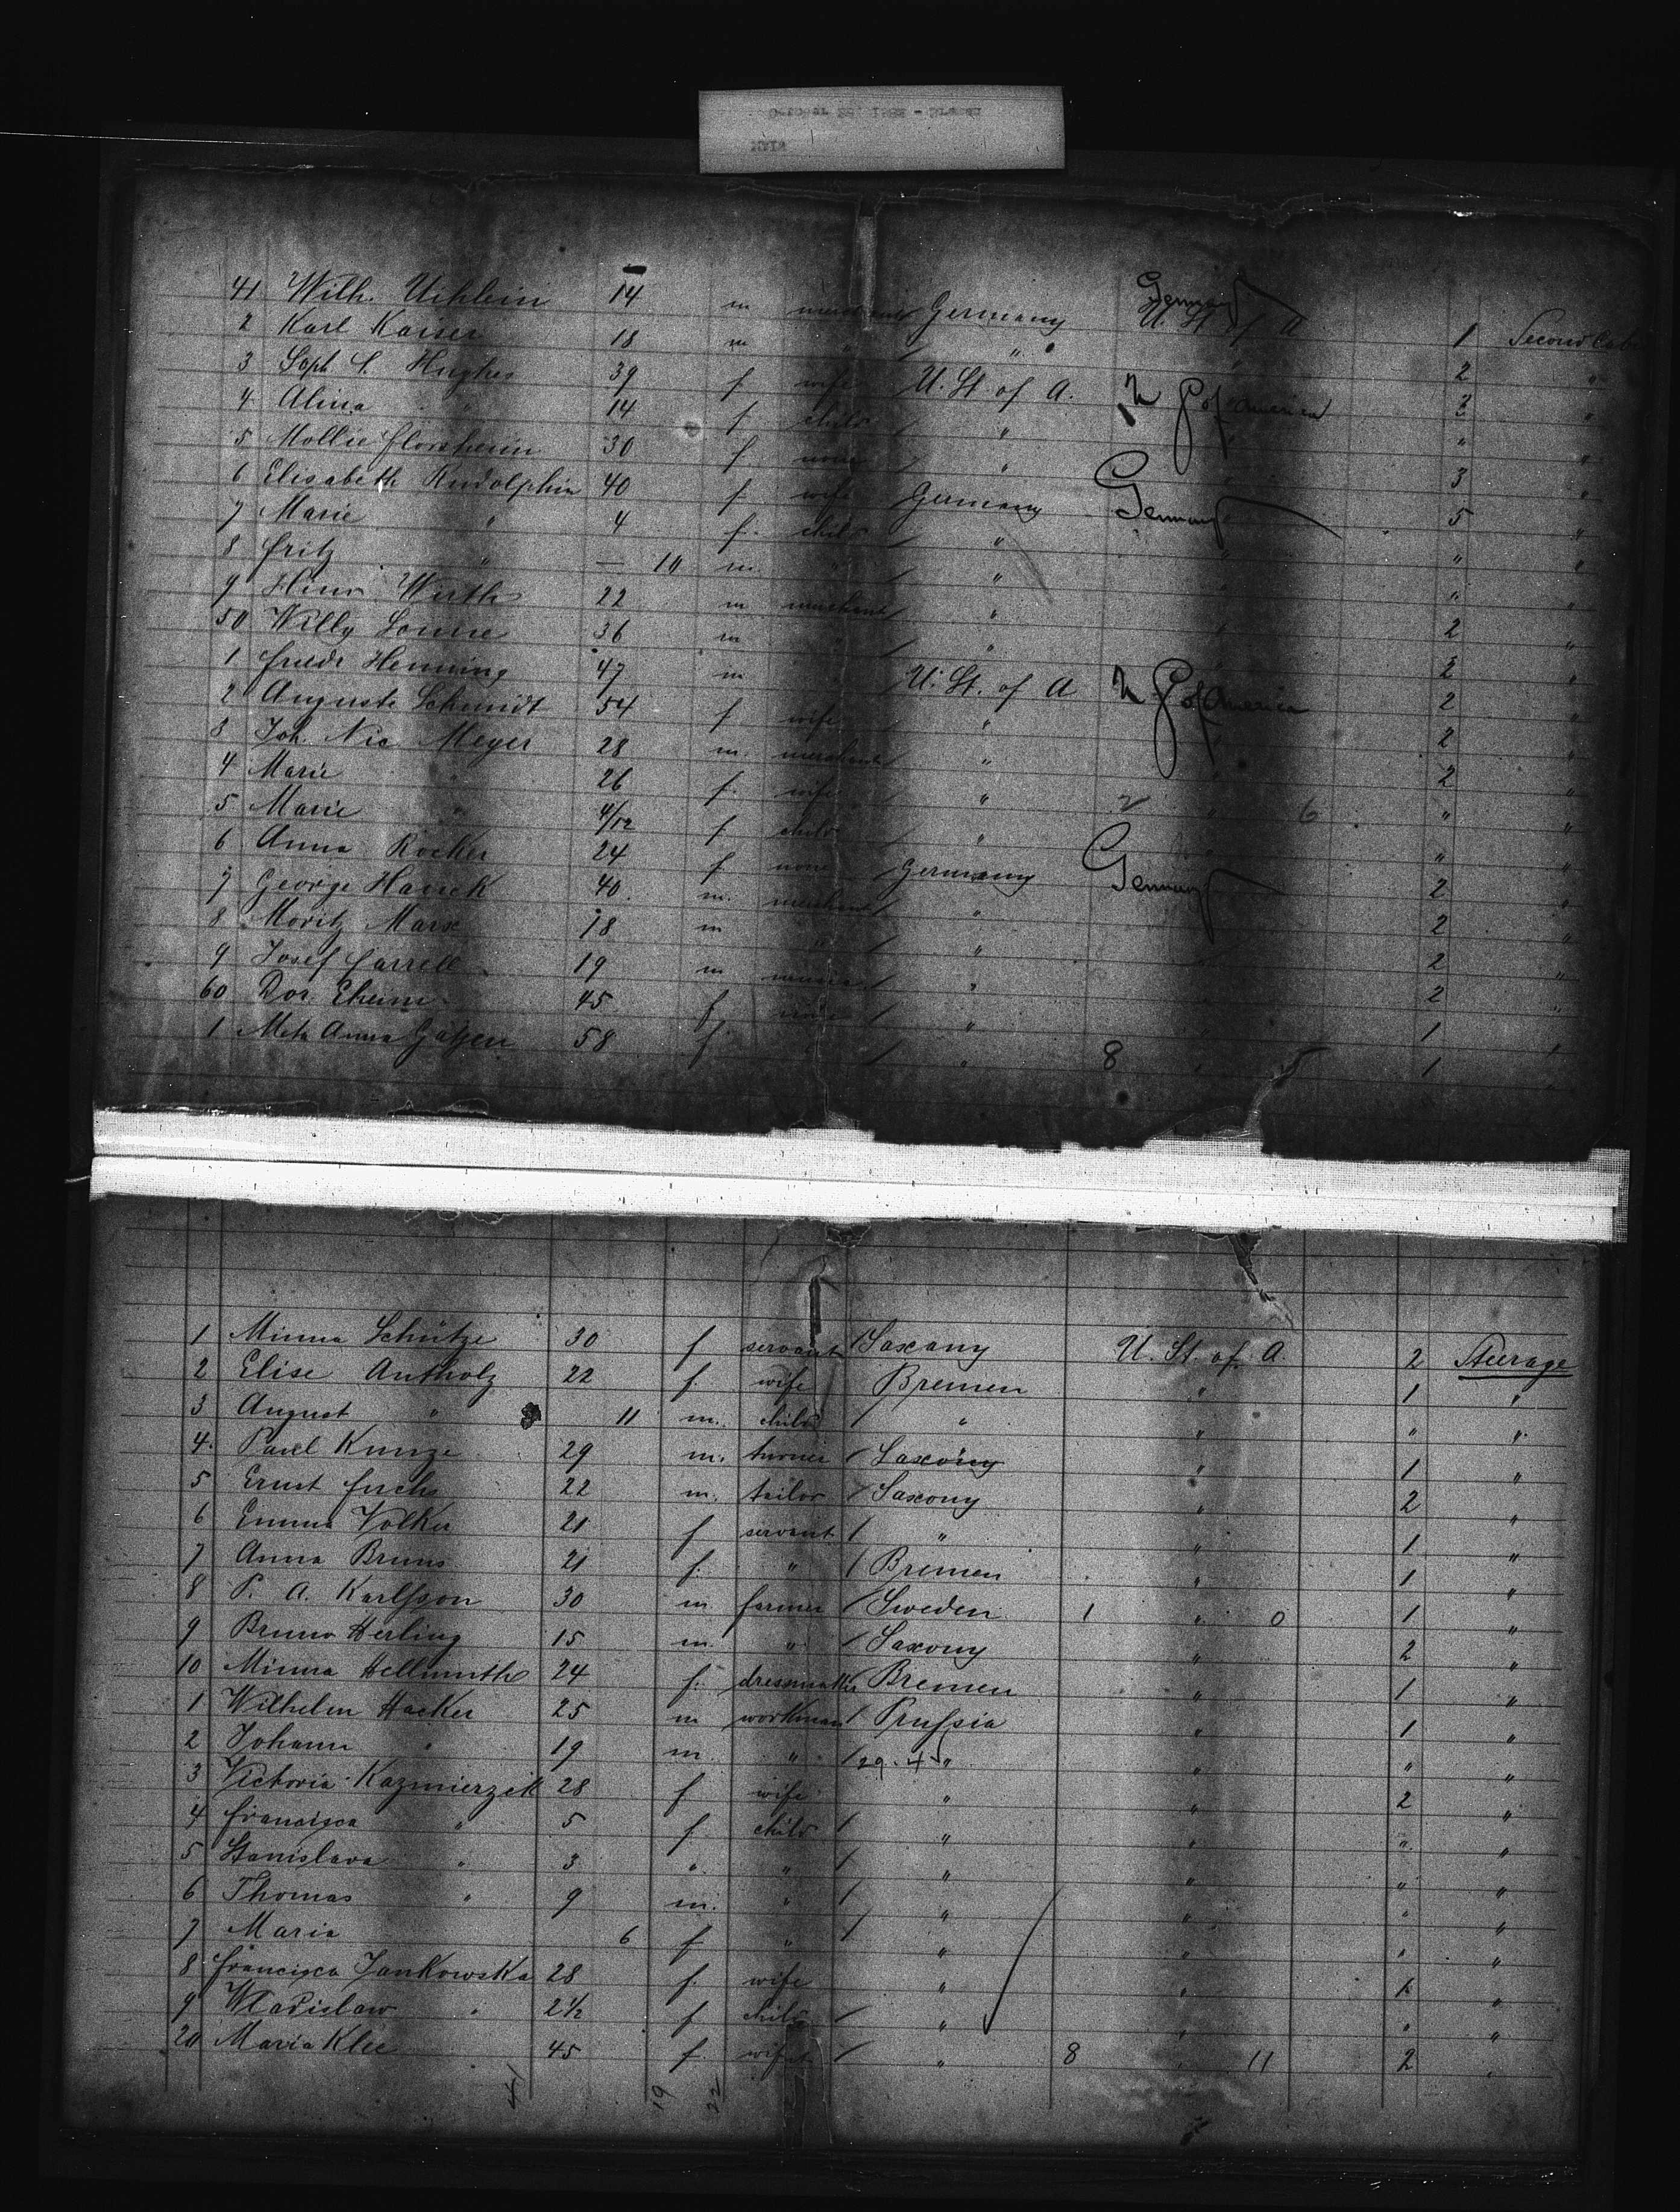 41 Wilh. Uihlein 14 m merchant Germany Germany U. St. of A 1 Second Cab
2 Karl Kaiser 18 m " " " 2 "
3 Soph S. Hughes 39 f wife U. St of A. of America 3 "
4 Alina " 14 f child " " " "
5 Mollie Florsheim 30 f none " " 3 "
6 Elisabeth Rudolphin 40 f wife Germany Germany 5 "
7 Marie " 4 f. child " " " "
8 Fritz " — 10 m. " " " " "
9 Hinr. Wirth 22 m merchant " " 2 "
50 Willy 36 m " " " 2 "
1 Friedr Henning 47 m " U. St. of A of America 2 "
2 Auguste Schmidt 54 f wife " " 2 "
3 Joh. Nic Meyer 28 m. merchant " " 2 "
4 Marie " 26 f. wife " 2 " 6 " "
5 Marie " 4/12 f child " " " "
6 Anna Rocker 24 f none Germany Germany 2 "
7 George Hauck 40. m. merchant " 2 "
8 Moritz Marx 18 m " " " 2 "
9 Josef Carrell 19 m " " 2 "
60 Dor. Eheim 45 f none " " 1 "
1 Meta Anna 58 f " " 8 " 1 "
1 Minna Schütze 30 f servant Saxany U. St. of A 2 Steerage
2 Elise Antholz 22 f. wife Bremen " 1 "
3 August " 11 m. child " " " "
4. Paul Kunze 29 m. turner Saxony " 1 "
5 Ernst Fuchs 22 m. tailor Saxony " 2 "
6 Emma Volker 21 f servant " " 1 "
7 Anna Bruns 21 f. " Bremen " 1 "
8 P. A. Karlsson 30 m farmer Sweden 1 " 0 1 "
9 Bruno Herling 15 m. " Saxony " 2 "
10 Minna Hellmuth 24 f. dressmaker Bremen " 1 "
1 Wilhelm Hacker 25 m workman Prussia " 1 "
2 Johann " 19 m. " 29. 4 " " " "
3 Victoria Kazmierzak 28 f wife " " 2 "
4 Francisca " 5 f child " " " "
5 Stanislava " 3 " " " " " "
6 Thomas " 9 m. " " " " "
7 Maria 6 f " " " " "
8 Francisca Jankowska 28 f. wife " " 1 "
9 Wladislaw " 2½ f child " " " "
20 Maria Klee 45 f. wife " 8 " 11 2 "
41 19 22